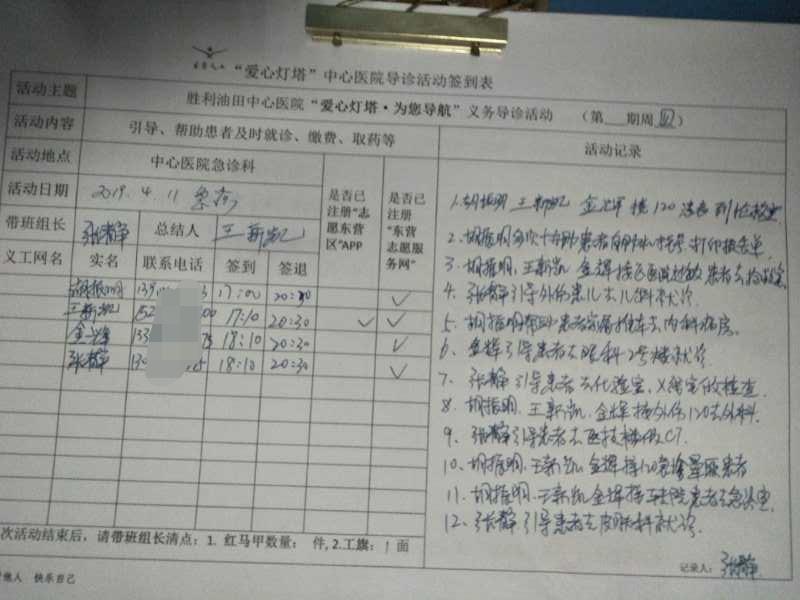 “爱心灯塔”中心医院导诊活动签到表
活动主题 胜利油田中心医院“爱心灯塔·为您导航”义务导诊活动 （第 期周四）
活动内容 引导、帮助患者及时就诊、缴费、取药等 活动记录
活动地点 中心医院急诊科 是否已注册“志愿东营区”APP 是否已注册“东营志愿服务网”
活动日期 2019.4.11
带班组长 张静 总结人 王新凯
义工网名 实名 联系电话 签到 签退
胡振明 17:00 20:30 ✓
王新凯 17:10 20:30 ✓ ✓
金辉 18:10 20:30 ✓
张静 18:10 20:30 ✓
1. 胡振明 王新凯 金辉 接120
2. 胡振明 患者 打印报告单
3. 胡振明, 王新凯 金辉 患者去
4. 张静引导外伤患儿去儿科就诊.
5. 胡振明帮助患者 推车去内科病房.
6. 金辉引导患者去眼科2号楼就诊
7. 张静引导患者去化验室, X线室做检查.
8. 胡振明, 王新凯, 金辉接外伤120去外科.
9. 张静引导患者去医技楼做CT.
10. 胡振明, 王新凯 金辉接120 患者
11. 胡振明, 王新凯 金辉接 患者
12. 张静引导患者去皮肤科就诊.
次活动结束后，请带班组长清点：1. 红马甲数量： 件, 2.工旗：1 面
记录人：张静
他人 快乐自己